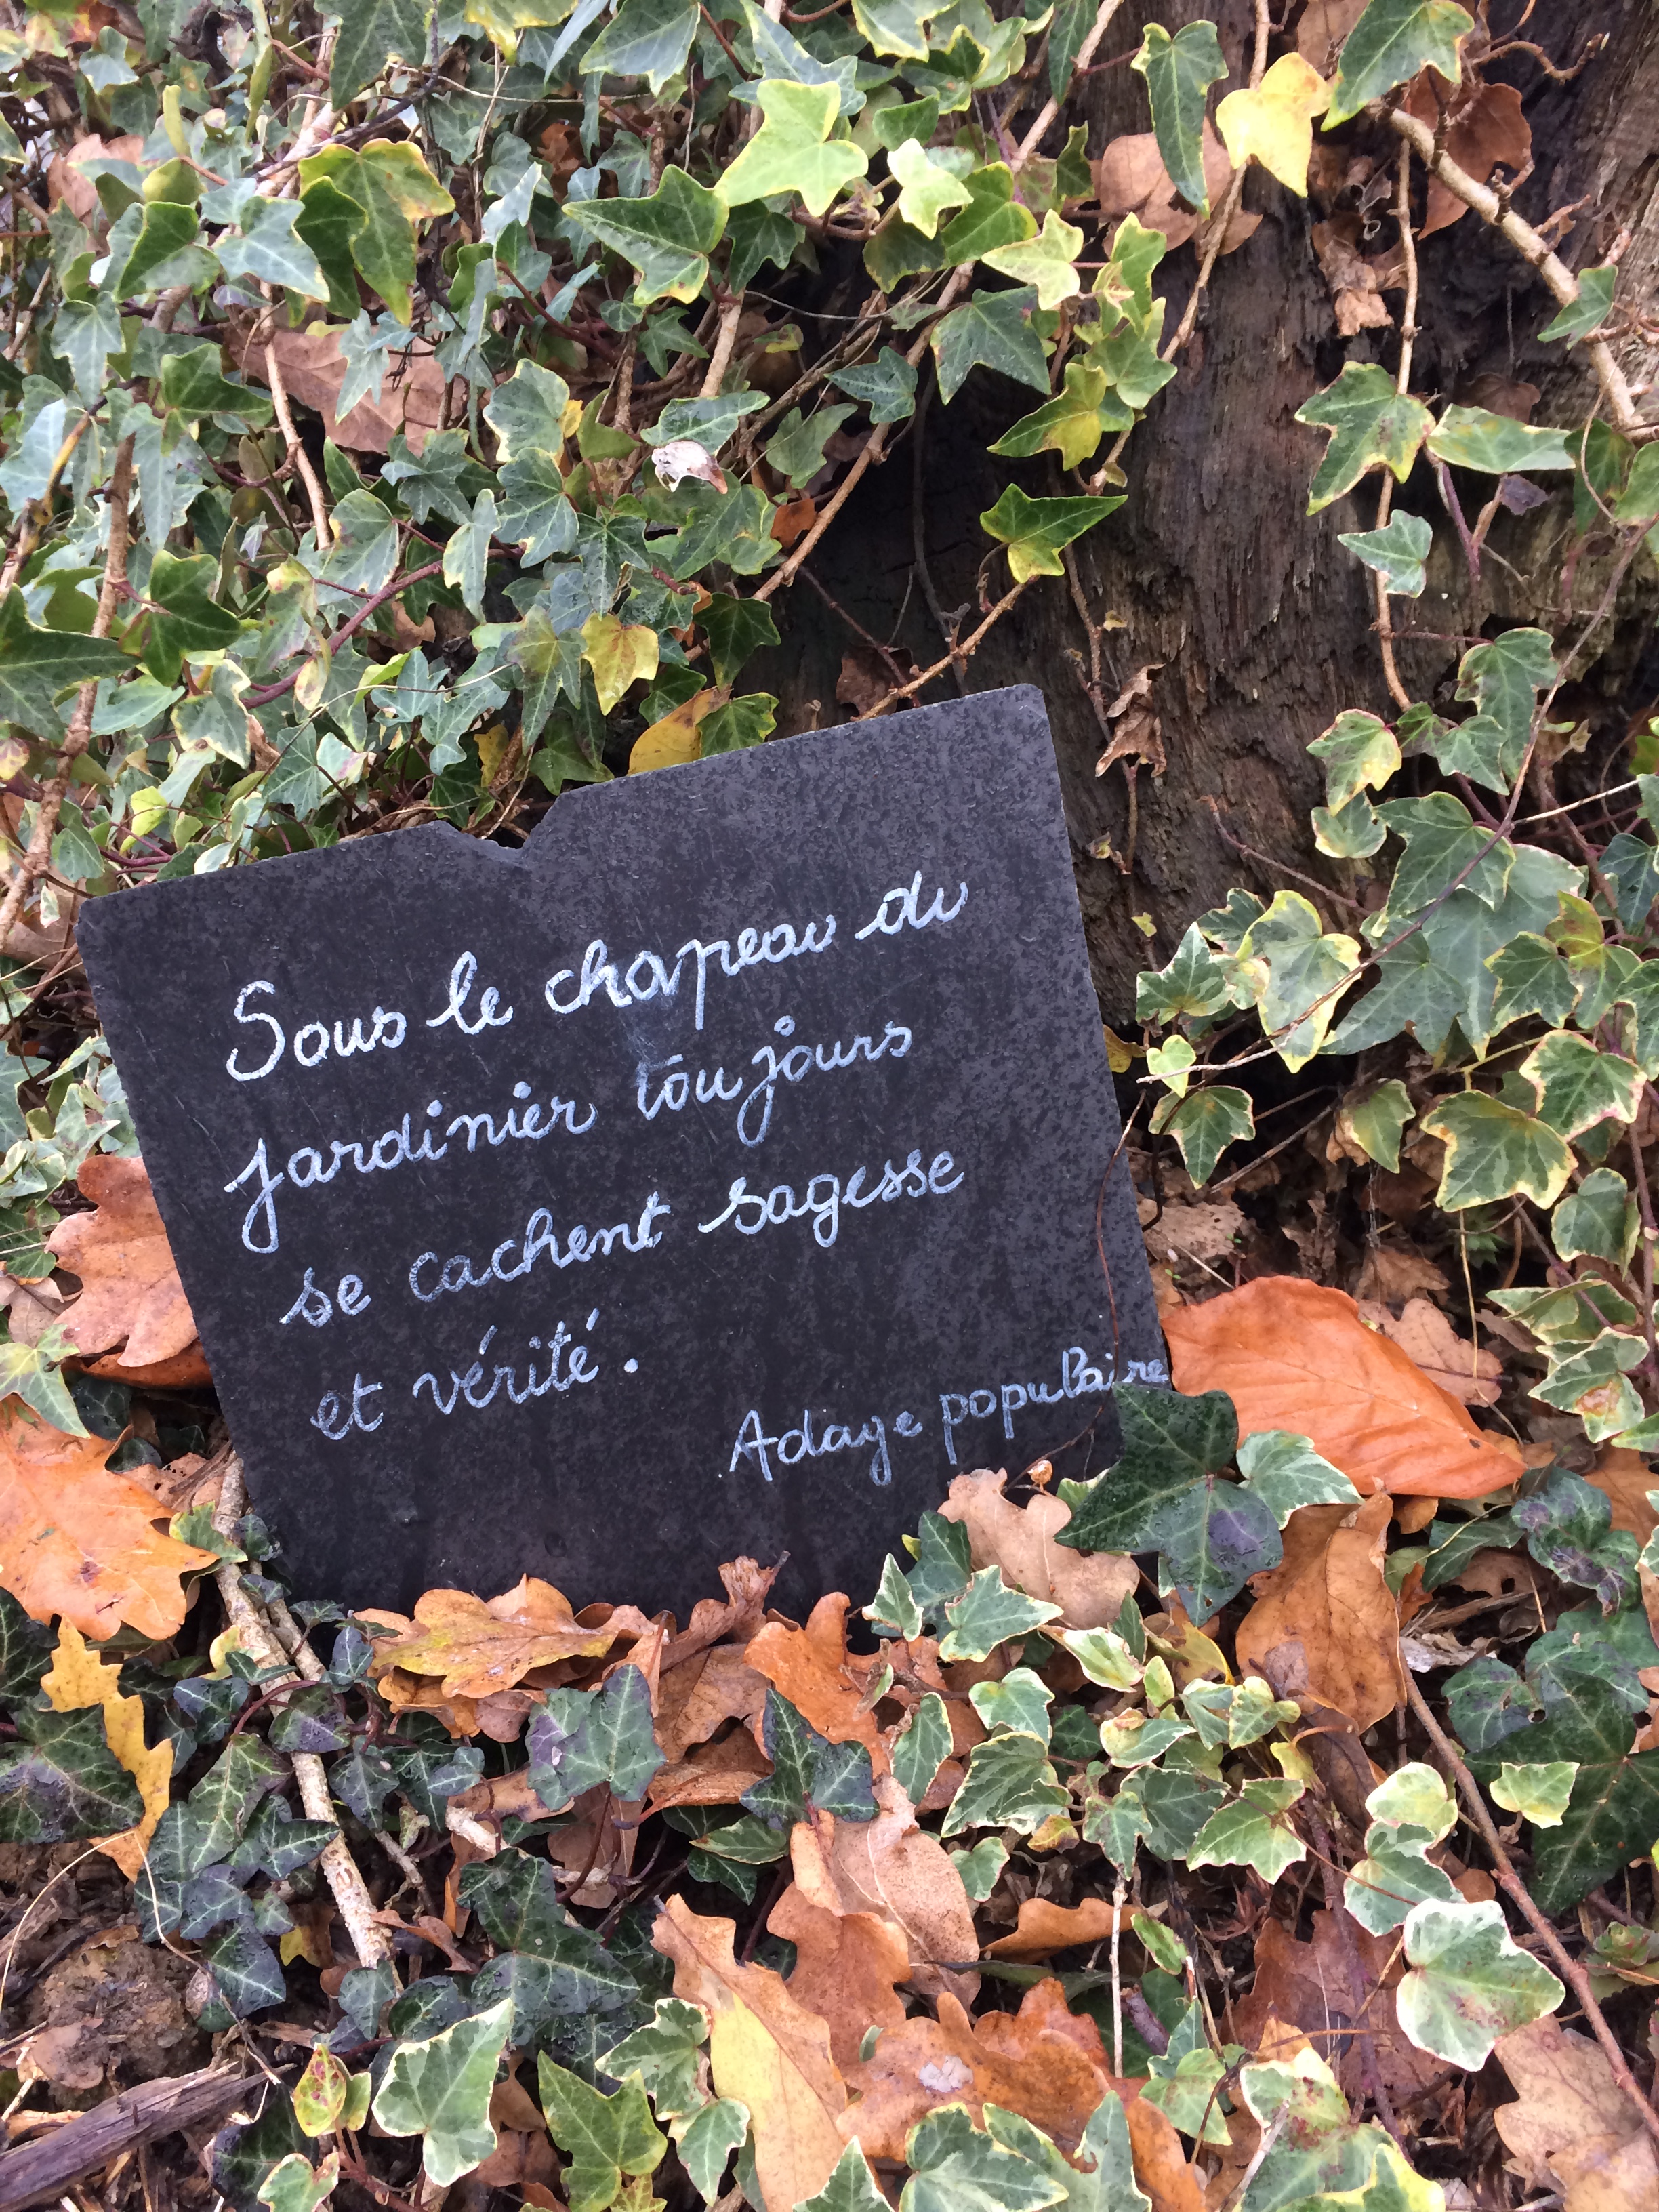 Sous le chapeau du
jardinier toujours
se cachent sagesse
et vérité.
Adage populaire